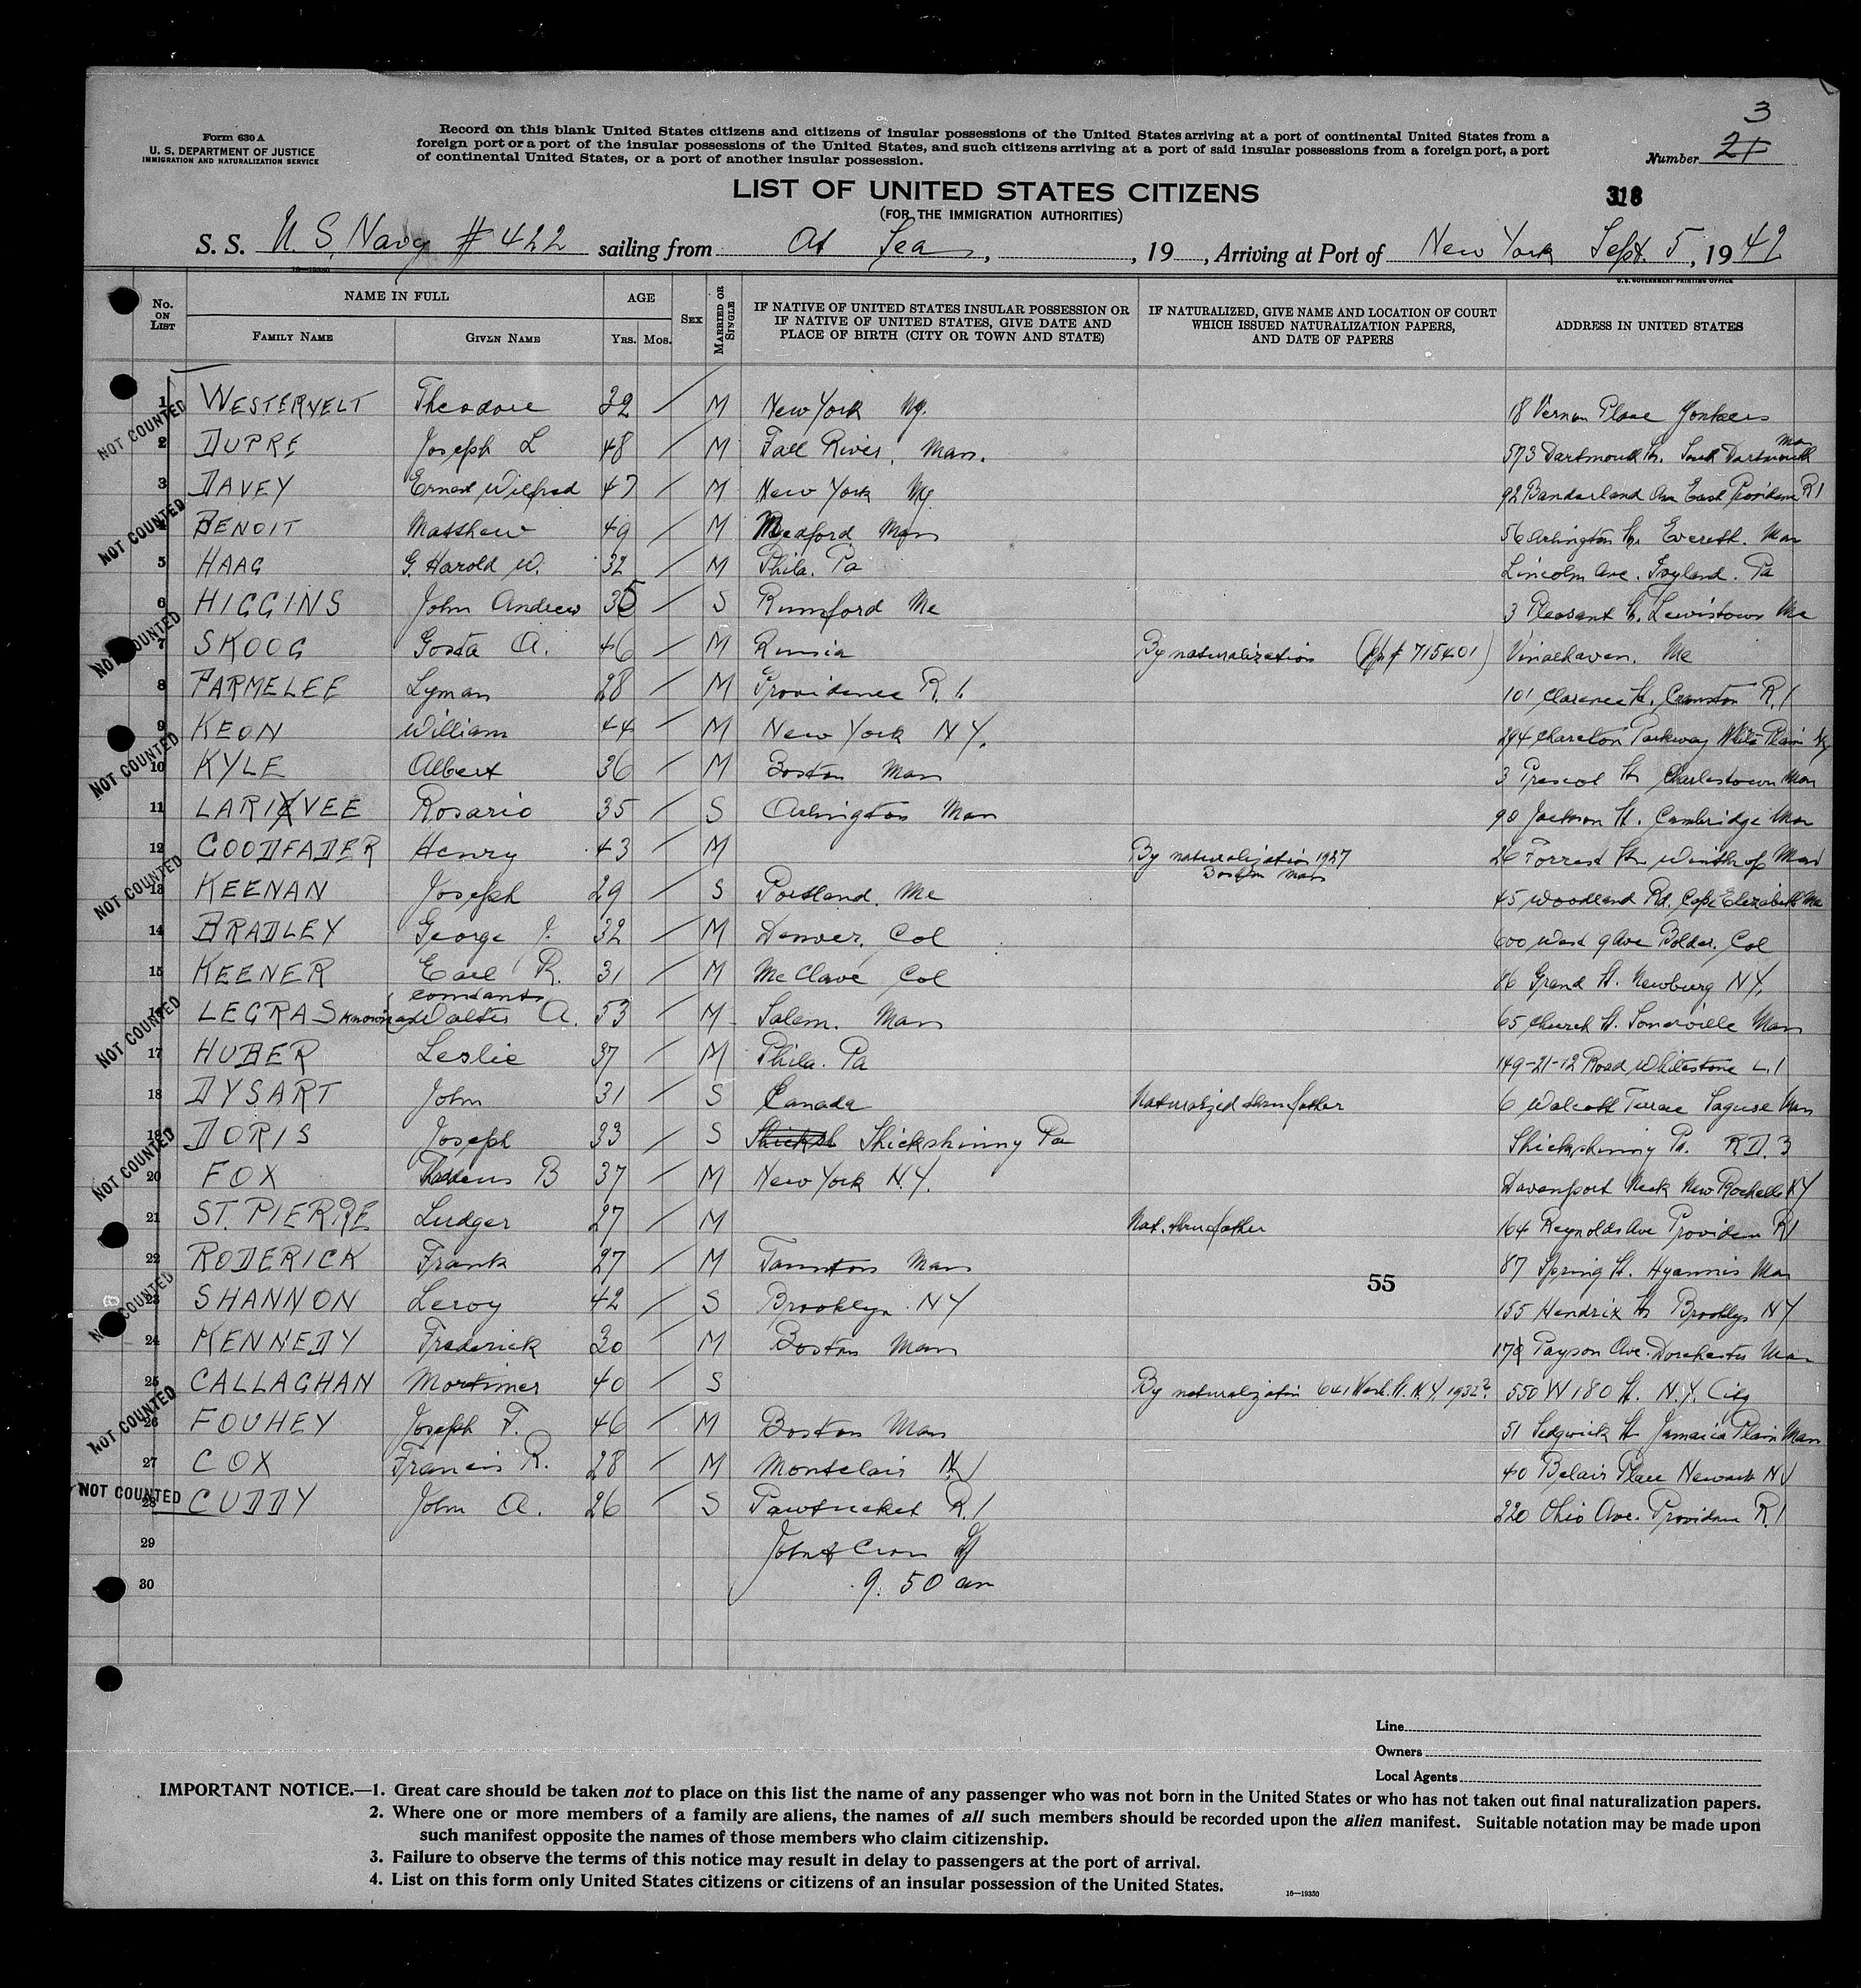 3
Form 630 A
U. S. DEPARTMENT OF JUSTICE
IMMIGRATION AND NATURALIZATION SERVICE
Record on this blank United States citizens and citizens of insular possessions of the United States arriving at a port of continental United States from a
foreign port or a port of the insular possessions of the United States, and such citizens arriving at a port of said insular possessions from a foreign port, a port
of continental United States, or a port of another insular possession.
Number 21
LIST OF UNITED STATES CITIZENS
(FOR THE IMMIGRATION AUTHORITIES)
318
S. S. U. S. Navy #422 sailing from At Sea, , 19 , Arriving at Port of New York Sept. 5, 1942
16—19350
U. S. GOVERNMENT PRINTING OFFICE
No. ON LIST NAME IN FULL FAMILY NAME GIVEN NAME AGE YRS. MOS. SEX MARRIED OR SINGLE IF NATIVE OF UNITED STATES INSULAR POSSESSION OR IF NATIVE OF UNITED STATES, GIVE DATE AND PLACE OF BIRTH (CITY OR TOWN AND STATE) IF NATURALIZED, GIVE NAME AND LOCATION OF COURT WHICH ISSUED NATURALIZATION PAPERS, AND DATE OF PAPERS ADDRESS IN UNITED STATES
1 WESTERVELT Theodore 32 / M New York Ny. 18 Vernon Place Yonkers
NOT COUNTED
2 DUPRE Joseph L 48 / M Fall River, Mass. 573 Dartmouth St. South Dartmouth Mass
3 DAVEY Ernest Wilfred 47 / M New York Ny. 92 Ave East Providence RI
NOT COUNTED
4 BENOIT Matthew 49 / M Medford Mass 56 Arlington St. Everett. Mass
5 HAAG G. Harold W. 32 / M Phila. Pa Lincoln Ave. Ivyland. Pa
6 HIGGINS John Andrew 35 / S Rumford Me 3 Pleasant St. Lewistown Me
NOT COUNTED
7 SKOOG Gosta A. 46 / M Russia By naturalization # 715401) Vinalhaven. Me
8 PARMELEE Lyman 28 / M Providence R.I. 101 Clarence St. Cranston R.I
9 KEON William 44 / M New York NY. 294 Parkway White Plains Ny
NOT COUNTED
10 KYLE Albert 36 / M Boston Mass 3 Prescot St Charlestown Mass
11 LARIVEE Rosario 35 / S Arlington Mass 90 Jackson St. Cambridge Mass
12 GOODFADER Henry 43 / M By naturalization 1927 Boston Mass 26 Forrest St. Winthrop Mass
NOT COUNTED
13 KEENAN Joseph 29 / S Portland. Me 45 Woodland Rd. Cape Elizabeth Me
14 BRADLEY George J. 32 / M Denver. Col 600 West 9 Ave Bolder. Col
15 KEENER Earl R. 31 / M McClave Col 86 Grand St. Newburg NY.
16 LEGRAS known as Walter A. 53 / M Salem. Mass 65 Church St. Somerville Mass
NOT COUNTED
17 HUBER Leslie 37 / M Phila. Pa 149-21-12 Road Whitestone L.I
18 DYSART John 31 / S Canada Naturalized thru father 6 Walcott Terrace Mass
19 DORIS Joseph 33 / S Shickshinny Pa Shickshinny Pa. R.D. 3
NOT COUNTED
20 FOX Thaddeus B 37 / M New York N.Y. Davenport Neck New Rochelle NY
21 ST. PIERRE Ludger 27 / M Nat. thru father 164 Reynolds Ave Providence RI
22 RODERICK Frank 27 / M Taunton Mass 87 Spring St. Hyannis Mass
NOT COUNTED
55
23 SHANNON Leroy 42 / S Brooklyn. NY 155 Hendrix St Brooklyn NY
24 KENNEDY Frederick 30 / M Boston Mass Payson Ave. Dorchester Mass
25 CALLAGHAN Mortimer 40 / S By naturalization 641 Wash. St. N.Y. 1932? 550 W 180 St. N.Y. City
NOT COUNTED
26 FOUHEY Joseph F. 46 / M Boston Mass 51 Sedgwick St Jamaica Plain Mass
27 COX Francis R. 28 / M Montclair NJ 40 Belair Place Newark NJ
NOT COUNTED
28 CUDDY John A. 26 / S Pawtucket R.I 220 Ohio Ave. Providence R.I
29
30 9. 50 am
Line
Owners
Local Agents
IMPORTANT NOTICE.—1. Great care should be taken not to place on this list the name of any passenger who was not born in the United States or who has not taken out final naturalization papers.
2. Where one or more members of a family are aliens, the names of all such members should be recorded upon the alien manifest. Suitable notation may be made upon
such manifest opposite the names of those members who claim citizenship.
3. Failure to observe the terms of this notice may result in delay to passengers at the port of arrival.
4. List on this form only United States citizens or citizens of an insular possession of the United States.
16—19350